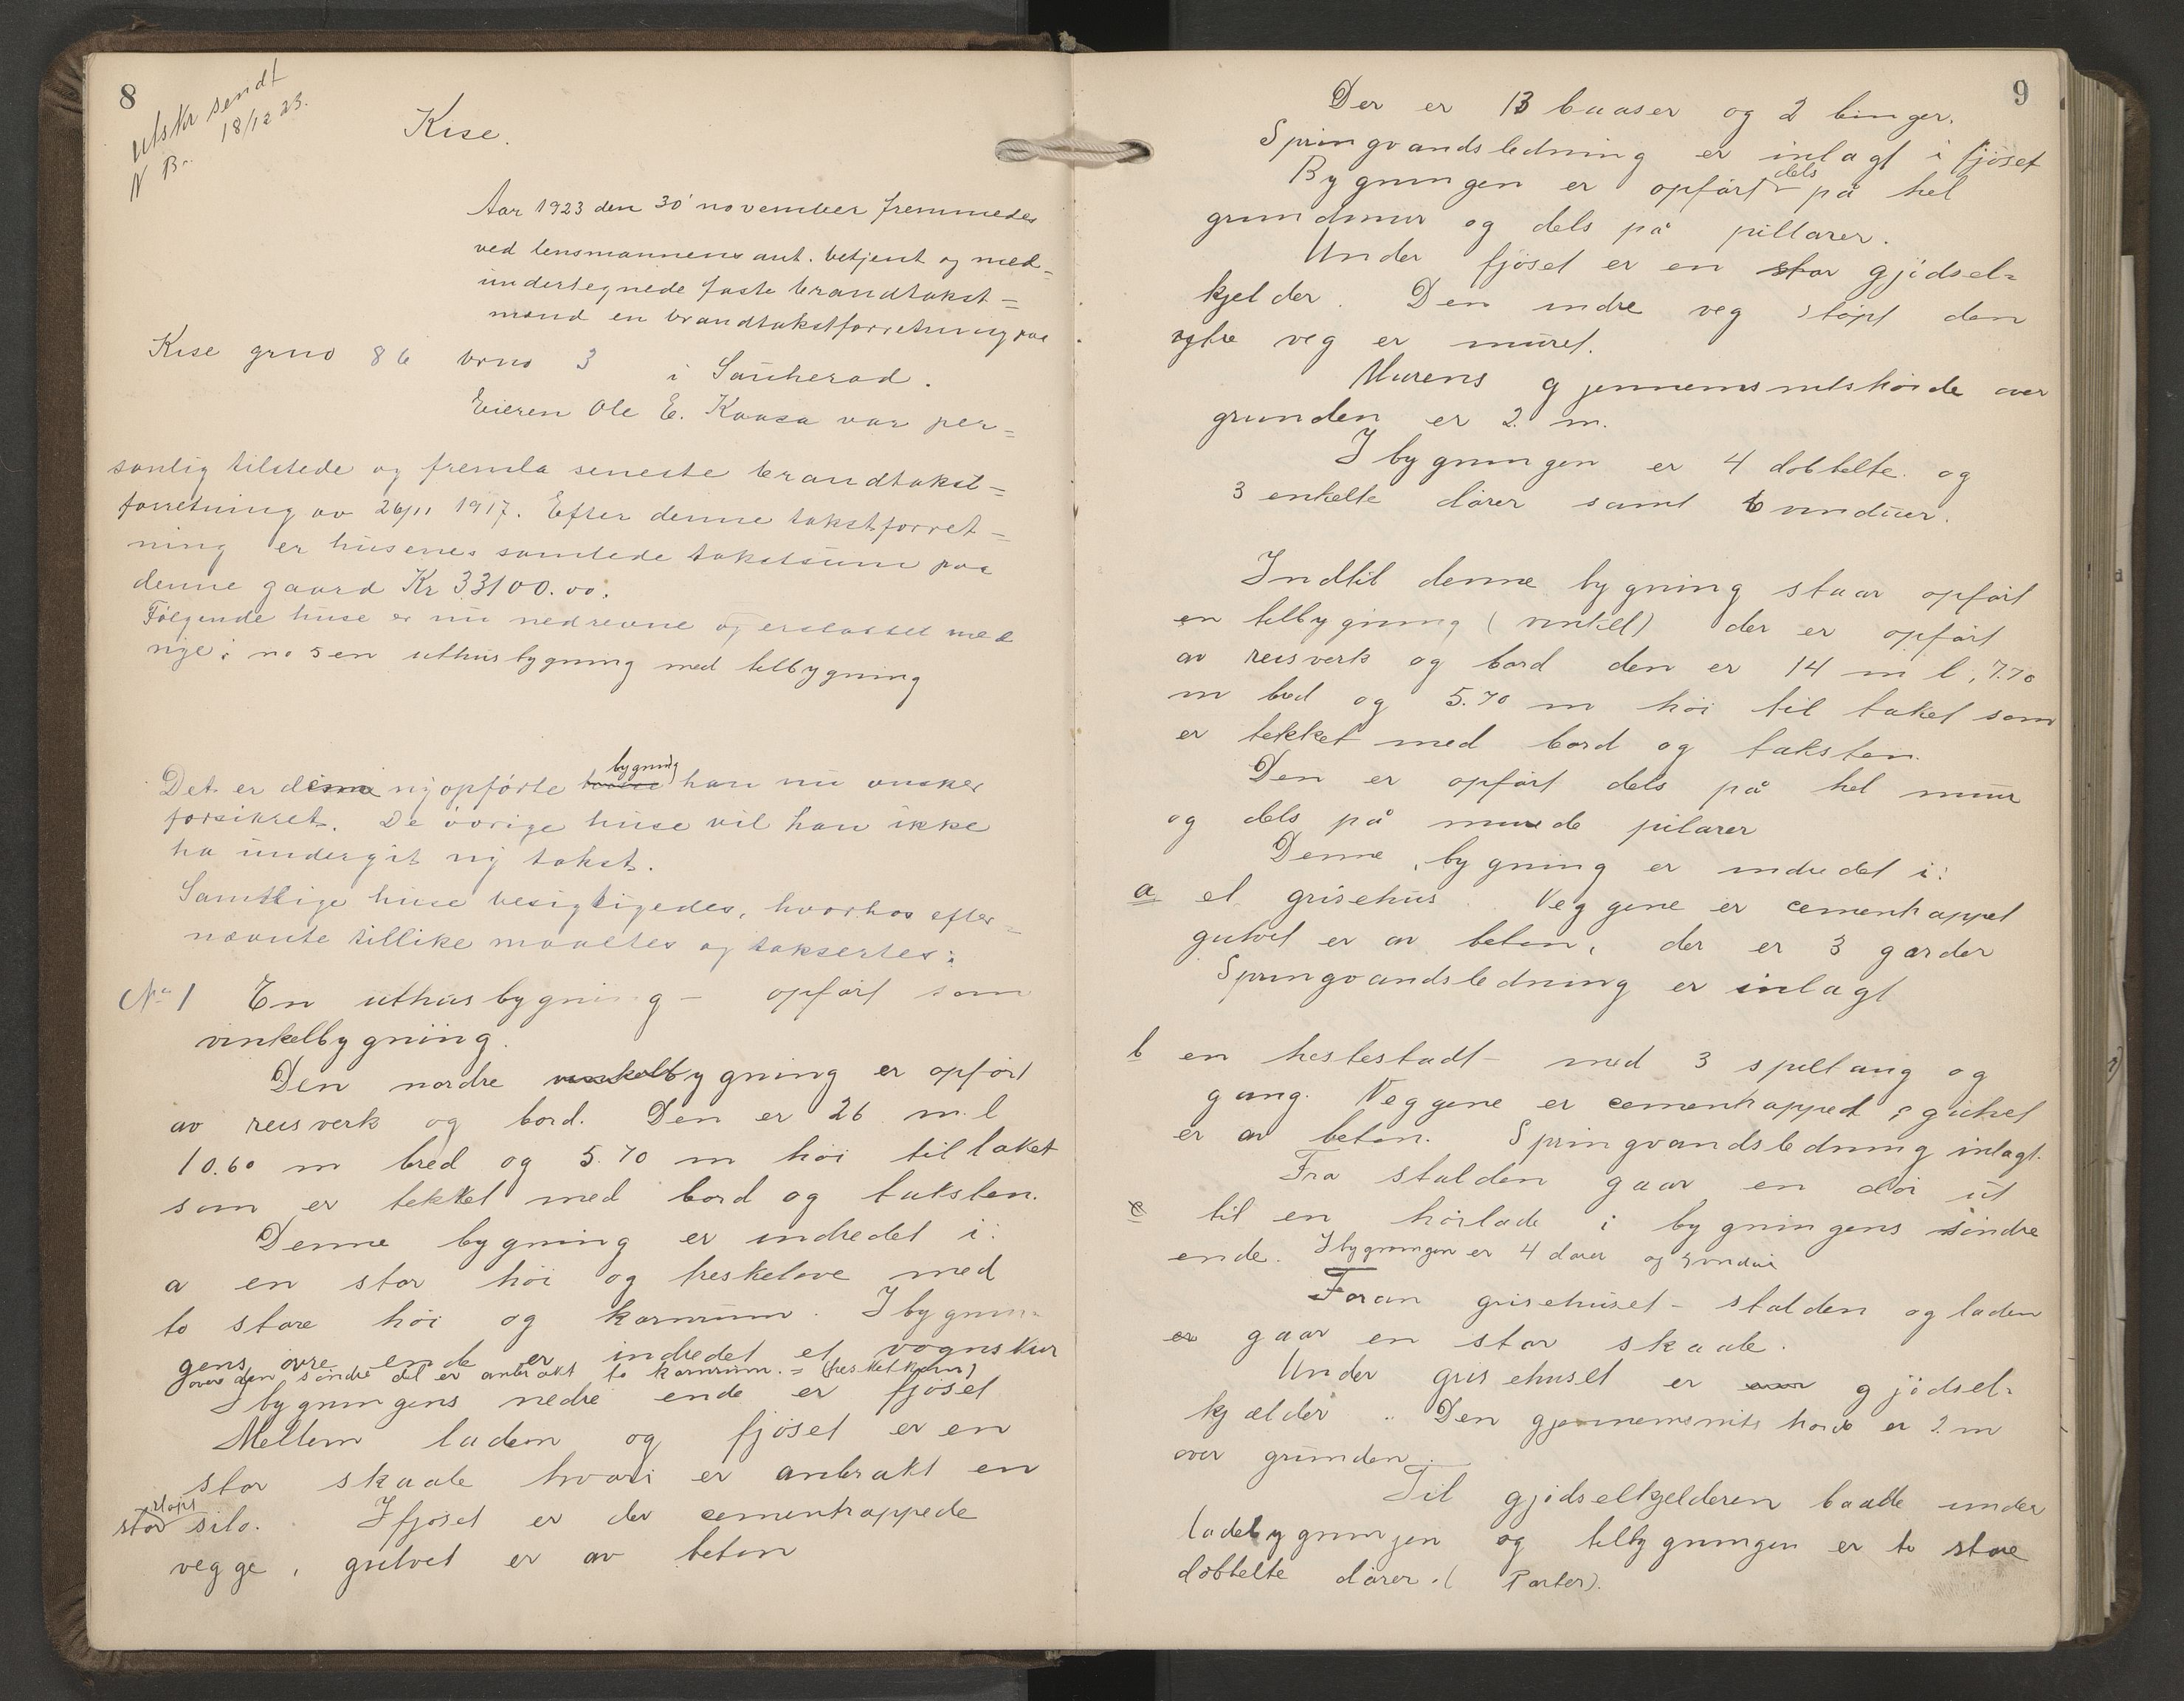 8
Utskr sendt
18/12 23.
N B.
Kise.
Aar 1923 den 30' november fremmedes
ved lensmannens aut. betjent og med=
undertegnede faste brandtakst=
mænd en brandtakstforretning paa
Kise grno 86 brno 3 i Sauherad.
Eieren Ole E. Kaasa var per=
sonlig tilstede og fremla seneste brandtakst=
forretning av 26/11 1917. Efter denne takstforret=
ning er husenes samlede takstsum paa
denne gaard Kr 33100.00.
Følgende huse er nu nedrevne og erstattet med
nye: no 5 en uthusbygning med tilbygning
bygning
Det er denne nyopførte han nu ønsker
forsikret. De øvrige huse vil han ikke
ha undergit ny takst.
Samtlige huse besigtigedes, hvorhos efter=
nævnte tillike maaltes og taksertes:
No 1 En uthusbygning - opført som
vinkelbygning.
Den nordre vinkelbygning er opført
av reisverk og bord. Den er 26 m. l
10.60 m bred og 5.70 m høi til taket
som er tekket med bord og taksten.
Denne bygning er indredet i:
a en stor høi og treskelove med
to store høi og kornrum. I bygnin-
gens øvre ende er indredet et vognskur
over den søndre del er anbrakt to kornrum. =
I bygningens nedre ende er fjøset
Mellem laden og fjøset er en
stor skaale hvori er anbrakt en
støpt
stor silo. I fjøset er der cementrappede
vegge, gulvet er av beton
9
Der er 13 baaser og 2 binger.
Springvandsledning er inlagt i fjøset
dels
Bygningen er opført på hel
grundmur og dels på pillarer.
Under fjøset er en stor gjødsel=
kjelder. Den indre veg støpt den
ytre veg er muret.
Murens gjennemsnitshøide over
grunden er 2 m.
I bygningen er 4 dobbelte og
3 enkelte dører samt 6 vinduer.
Indtil denne bygning staar opført
en tilbygning (vinkel) der er opført
av reisverk og bord den er 14 m l, 7.70
m bred og 5.70 m høi til taket som
er tekket med bord og taksten.
Den er opført dels på hel mur
og dels på murede pilarer
Denne bygning er indredet i:
a et grisehus. Veggene er cementrappet
gulvet er av beton, der er 3 garder
Springvandsledning er inlagt
b en hestestadl- med 3 spiltaug og
gang. Veggene er cementrapped, gulvet
er av beton. Springvandsledning inlagt.
Fra stalden gaar en dør ut
c til en høilade i bygningens søndre
ende. I bygningen er 4 dører og 5 vindui
Foran grisehuset - stalden og laden
er gaar en stor skaale.
Under grisehuset er gjødsel=
kjælder. Den gjennemsnits høide er 2 m
over grunden.
Til gjødselkjelderen baade under
ladebygningen og tilbygningen er to store
dobbelte dører. (Porter).